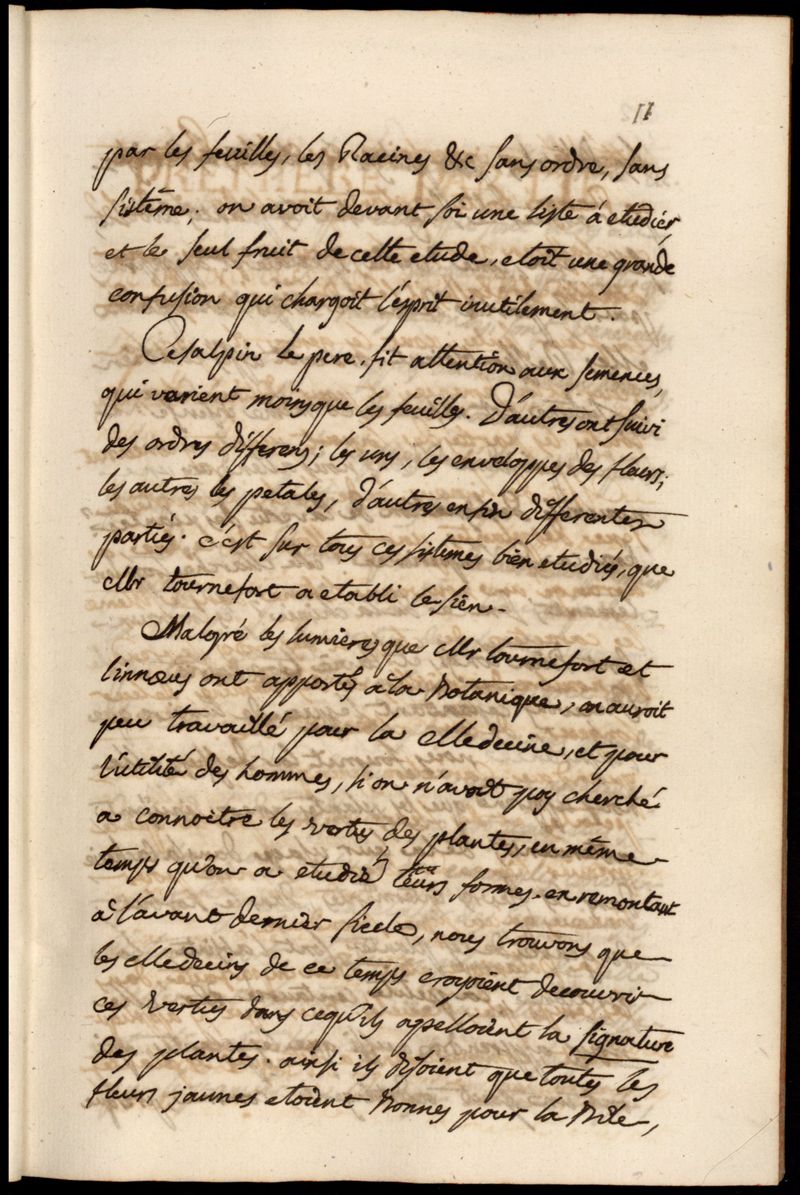 11
par les feuilles, les Racines &c sans ordre, sans
sistême; on avoit devant soi une liste à etudier
et le seul fruit de cette etude, etoit une grande
confusion qui chargoit l'ésprit inutilement.
Cesalpin le pere, fit attention aux semences,
qui varient moins que les feuilles. D'autres ont suivi
des ordres différens; les uns, les enveloppes des fleurs;
les autres les petales, d'autres enfin differentes
partiés. c'ést sur tous ces sistemes bien etudiés, que
Mr tournefort a etabli le sien.
Malgré les lumieres que Mr tournefort et
linnœus ont apportés à la Botanique, on auroit
peu travaillé pour la Medecine, et pour
l'utilité des hommes, si on n'avoit pas cherché
a connoitre les vertus des plantes, en même
temps qu'on a etudié leurs formes. en remontant
à l'avant dernier siecle, nous trouvons que
les Medecins de ce temps croyoient decouvrir
ces vertus dans ce qu'ils appelloient la signature
des plantes. ainsi ils disoient que toutes les
fleurs jaunes etoient Bonnes pour la Bile,